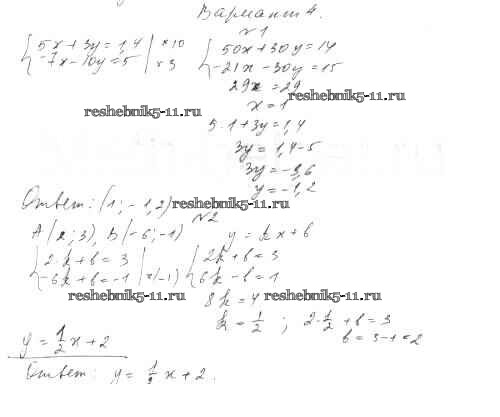 Вариант 4.
№1
{5x + 3y = 1,4 | ×10 {50x + 30y = 14
{-7x - 10y = 5 | ×3 {-21x - 30y = 15
29x = 29
reshebnik5-11.ru x = 1 reshebnik5-11.ru
5·1 + 3y = 1,4
3y = 1,4 - 5
3y = -3,6
y = -1,2
Ответ: (1; -1,2) reshebnik5-11.ru
№2
A(2; 3), B(-6; -1) y = kx + b
{2·k + b = 3 {2k + b = 3
{-6k + b = -1 | ×(-1) {6k - b = 1
reshebnik5-11.ru 8k = 4 reshebnik5-11.ru
k = 1/2 ; 2·1/2 + b = 3
b = 3-1=2
y = 1/2 x + 2
Ответ: y = 1/2 x + 2.